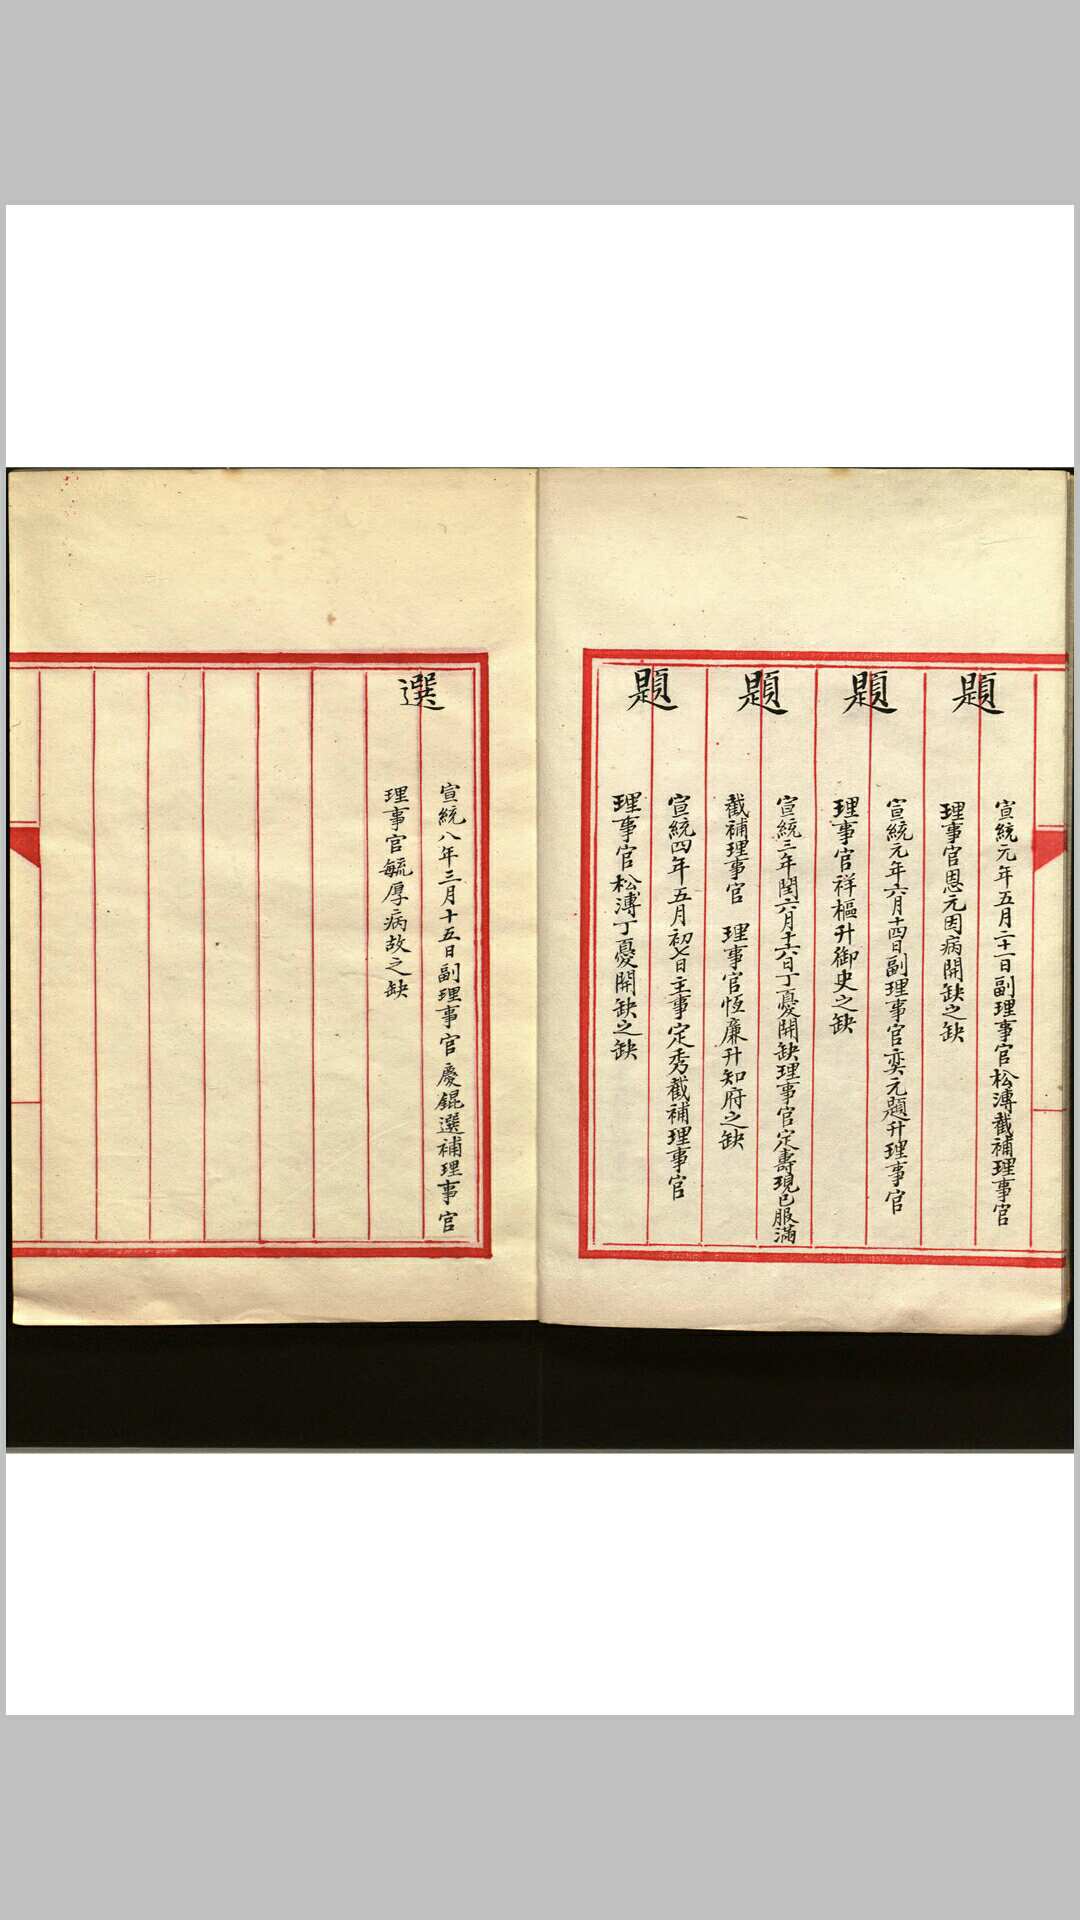 題
宣統元年五月二十一日副理事官松溥截補理事官
理事官恩元因病開缺之缺
題
宣統元年六月十四日副理事官奕元題升理事官
理事官祥樞升御史之缺
題
宣統三年閏六月十六日丁憂開缺理事官定壽現已服滿
截補理事官 理事官恆廉升知府之缺
題
宣統四年五月初七日主事定秀截補理事官
理事官松溥丁憂開缺之缺
選
宣統八年三月十五日副理事官慶錕選補理事官
理事官毓厚病故之缺